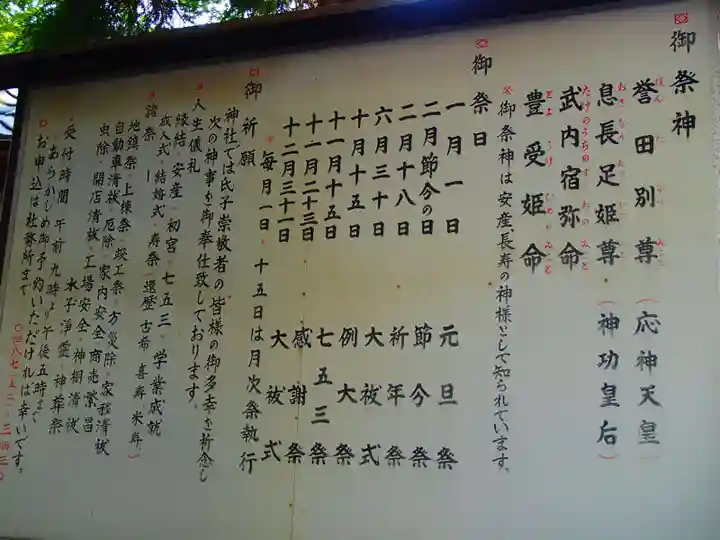 ※御祭神
誉田別尊（応神天皇）
息長足姫尊（神功皇后）
武内宿弥命
豊受姫命
※御祭神は安産、長寿の神様として知られています。
※御祭日
一月一日 元旦祭
二月節分の日 節分祭
二月十八日 祈年祭
六月三十日 大祓式
十月十五日 例大祭
十一月十五日 七五三祭
十一月二十三日 感謝祭
十二月三十一日 大祓式
※毎月一日・十五日は月次祭執行
※御祈願
神社では氏子崇敬者の皆様の御多幸を祈念し
次の神事を御奉仕致しております。
・人生儀礼
縁結・安産・初宮・七五三・学業成就
成人式・結婚式・寿祭（還暦・古希・喜寿・米寿）
・諸祭
地鎮祭・上棟祭・竣工祭・方災除・家移清祓
自動車清祓・厄除・家内安全・商売繁昌
虫除・開店清祓・工場安全・神棚清祓
水子浄霊・神葬祭
・受付時間 午前九時より午後五時まで
あらかじめ御予約いただければ幸いです。
○お申込は社務所まで